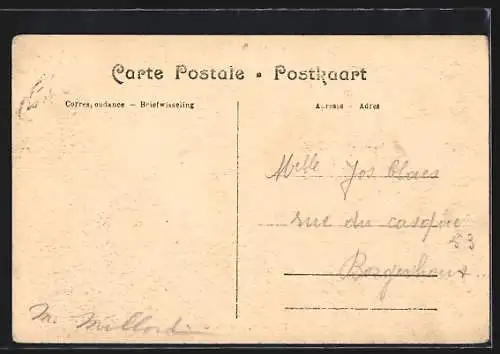 Carte Postale • Postkaart
Corres,ondance – Briefwisseling
Adresse - Adres
Melle Jos Claes
rue du casque
53
Borgerhout
M.